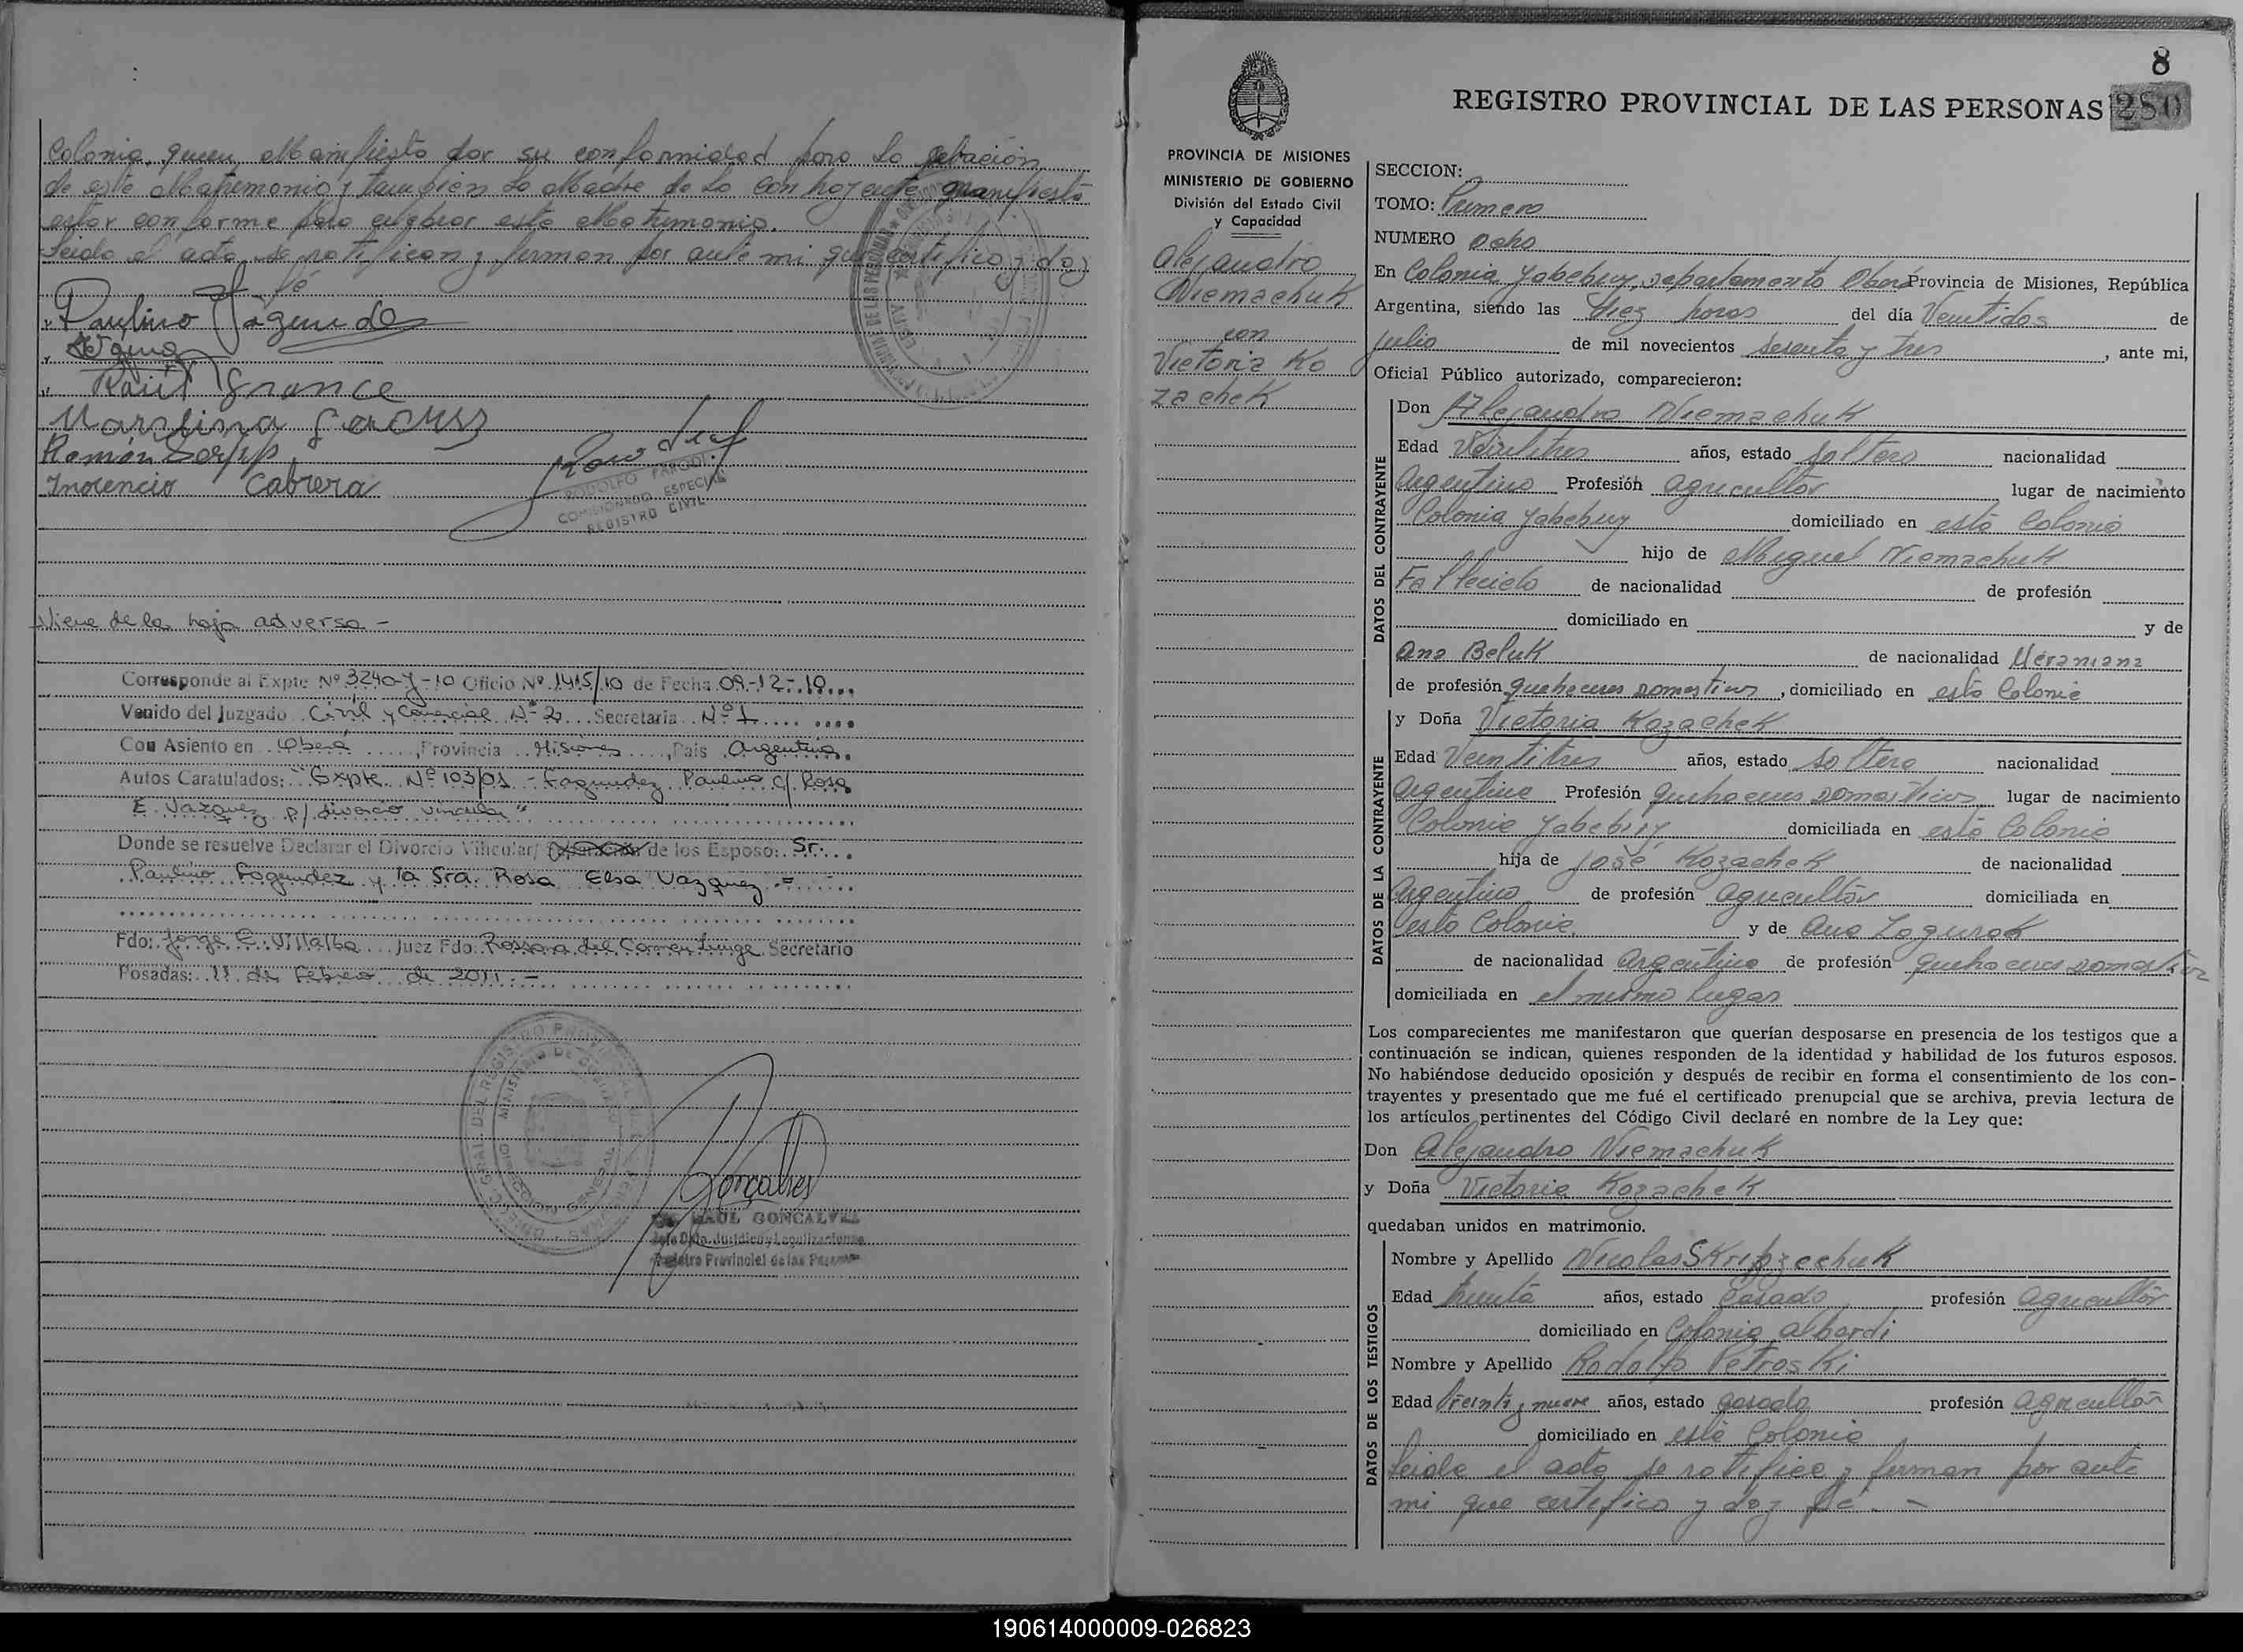 Colonia, quien Manifiesta dar su conformidad para la
de este Matrimonio y tambien la Madre de la Conthoyente manifiesta
estar conforme para celebrar este Matrimonio.
Leida el acta, se ratifican y firman por ante mi que certifico y doy
fé
Paulino Fagundez
Raúl Grance
Ramón
Inocencio Cabrera
RODOLFO
COMISIONADO ESPECIAL
REGISTRO CIVIL
Viene de la hoja adversa -
Corresponde al Expte Nº 3240-Y-10 Oficio Nº 1415/10 de Fecha 09-12-10
Venido del Juzgado Civil y Comercial Nº 2 Secretaria Nº 1
Con Asiento en Oberá, Provincia Misiones, Pais Argentina
Autos Caratulados: "Expte Nº 103/01 - Fagundez Paulino c/ Rosa
E. Vazquez p/ divorcio vincular"
Donde se resuelve Declarar el Divorcio Vincular/ de los Esposo: Sr.
Paulino Fagundez y la Sra. Rosa Elsa Vazquez.=
Fdo: Jorge E. Villalba Juez Fdo. Rossana del Carmen Secretario
Posadas: 11 de Febrero de 2011.-
RAUL GONCALVES
Jefe Dpto. Jurídico y Legalizaciones
Registro Provincial de las Personas
8
REGISTRO PROVINCIAL DE LAS PERSONAS 280
PROVINCIA DE MISIONES
MINISTERIO DE GOBIERNO
División del Estado Civil
y Capacidad
Alejandro
Niemachuk
con
Victoria Ko
zachek
SECCION:
TOMO: Primero
NUMERO Ocho
En Colonia Yabebuy, departamento Oberá Provincia de Misiones, República
Argentina, siendo las diez horas del día Veintidos de
Julio de mil novecientos sesenta y tres, ante mi,
Oficial Público autorizado, comparecieron:
DATOS DEL CONTRAYENTE
Don Alejandro Niemachuk
Edad Veintitres años, estado soltero nacionalidad
Argentino Profesión agricultor lugar de nacimiento
Colonia Yabebuy domiciliado en esta Colonia
hijo de Miguel Niemachuk
Fallecido de nacionalidad de profesión
domiciliado en y de
Ana Beluk de nacionalidad Ucraniana
de profesión quehaceres domesticos, domiciliado en esta Colonia
DATOS DE LA CONTRAYENTE
y Doña Victoria Kozachek
Edad Veintitres años, estado soltera nacionalidad
Argentina Profesión quehaceres domesticos lugar de nacimiento
Colonia Yabebuy domiciliada en esta Colonia
hija de José Kozachek de nacionalidad
Argentino de profesión agricultor domiciliada en
esta Colonia y de Ana
de nacionalidad Argentina de profesión quehaceres domesticos
domiciliada en el mismo lugar
Los comparecientes me manifestaron que querían desposarse en presencia de los testigos que a
continuación se indican, quienes responden de la identidad y habilidad de los futuros esposos.
No habiéndose deducido oposición y después de recibir en forma el consentimiento de los con-
trayentes y presentado que me fué el certificado prenupcial que se archiva, previa lectura de
los artículos pertinentes del Código Civil declaré en nombre de la Ley que:
Don Alejandro Niemachuk
y Doña Victoria Kozachek
quedaban unidos en matrimonio.
DATOS DE LOS TESTIGOS
Nombre y Apellido Nicolas Skripzechuk
Edad treinta años, estado Casado profesión agricultor
domiciliado en Colonia alberdi
Nombre y Apellido Rodolfo Petroski
Edad treinta y nueve años, estado casado profesión agricultor
domiciliado en esta Colonia
Leida el acta se ratifica y firman por ante
mi que certifico y doy fé. -
190614000009-026823